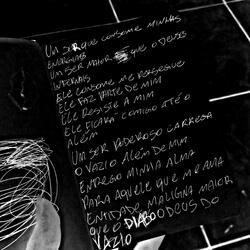 UM SER QUE CONSOME MINHAS
ENERGIAS
UM SER MAIOR QUE O DEUSES
INFERNAIS
ELE CONSOME ME PERSEGUE
ELE FAZ PARTE DE MIM
ELE RESISTE A MIM
ELE FICARA COMIGO ATÉ O
ALÉM
UM SER PODEROSO CARREGA
O VAZIO ALÉM DE MIM
ENTREGO MINHA ALMA
PARA AQUELE QUE ME
ENTIDADE MALIGNA MAIOR
QUE O DIABO O DEUS DO
VAZIO